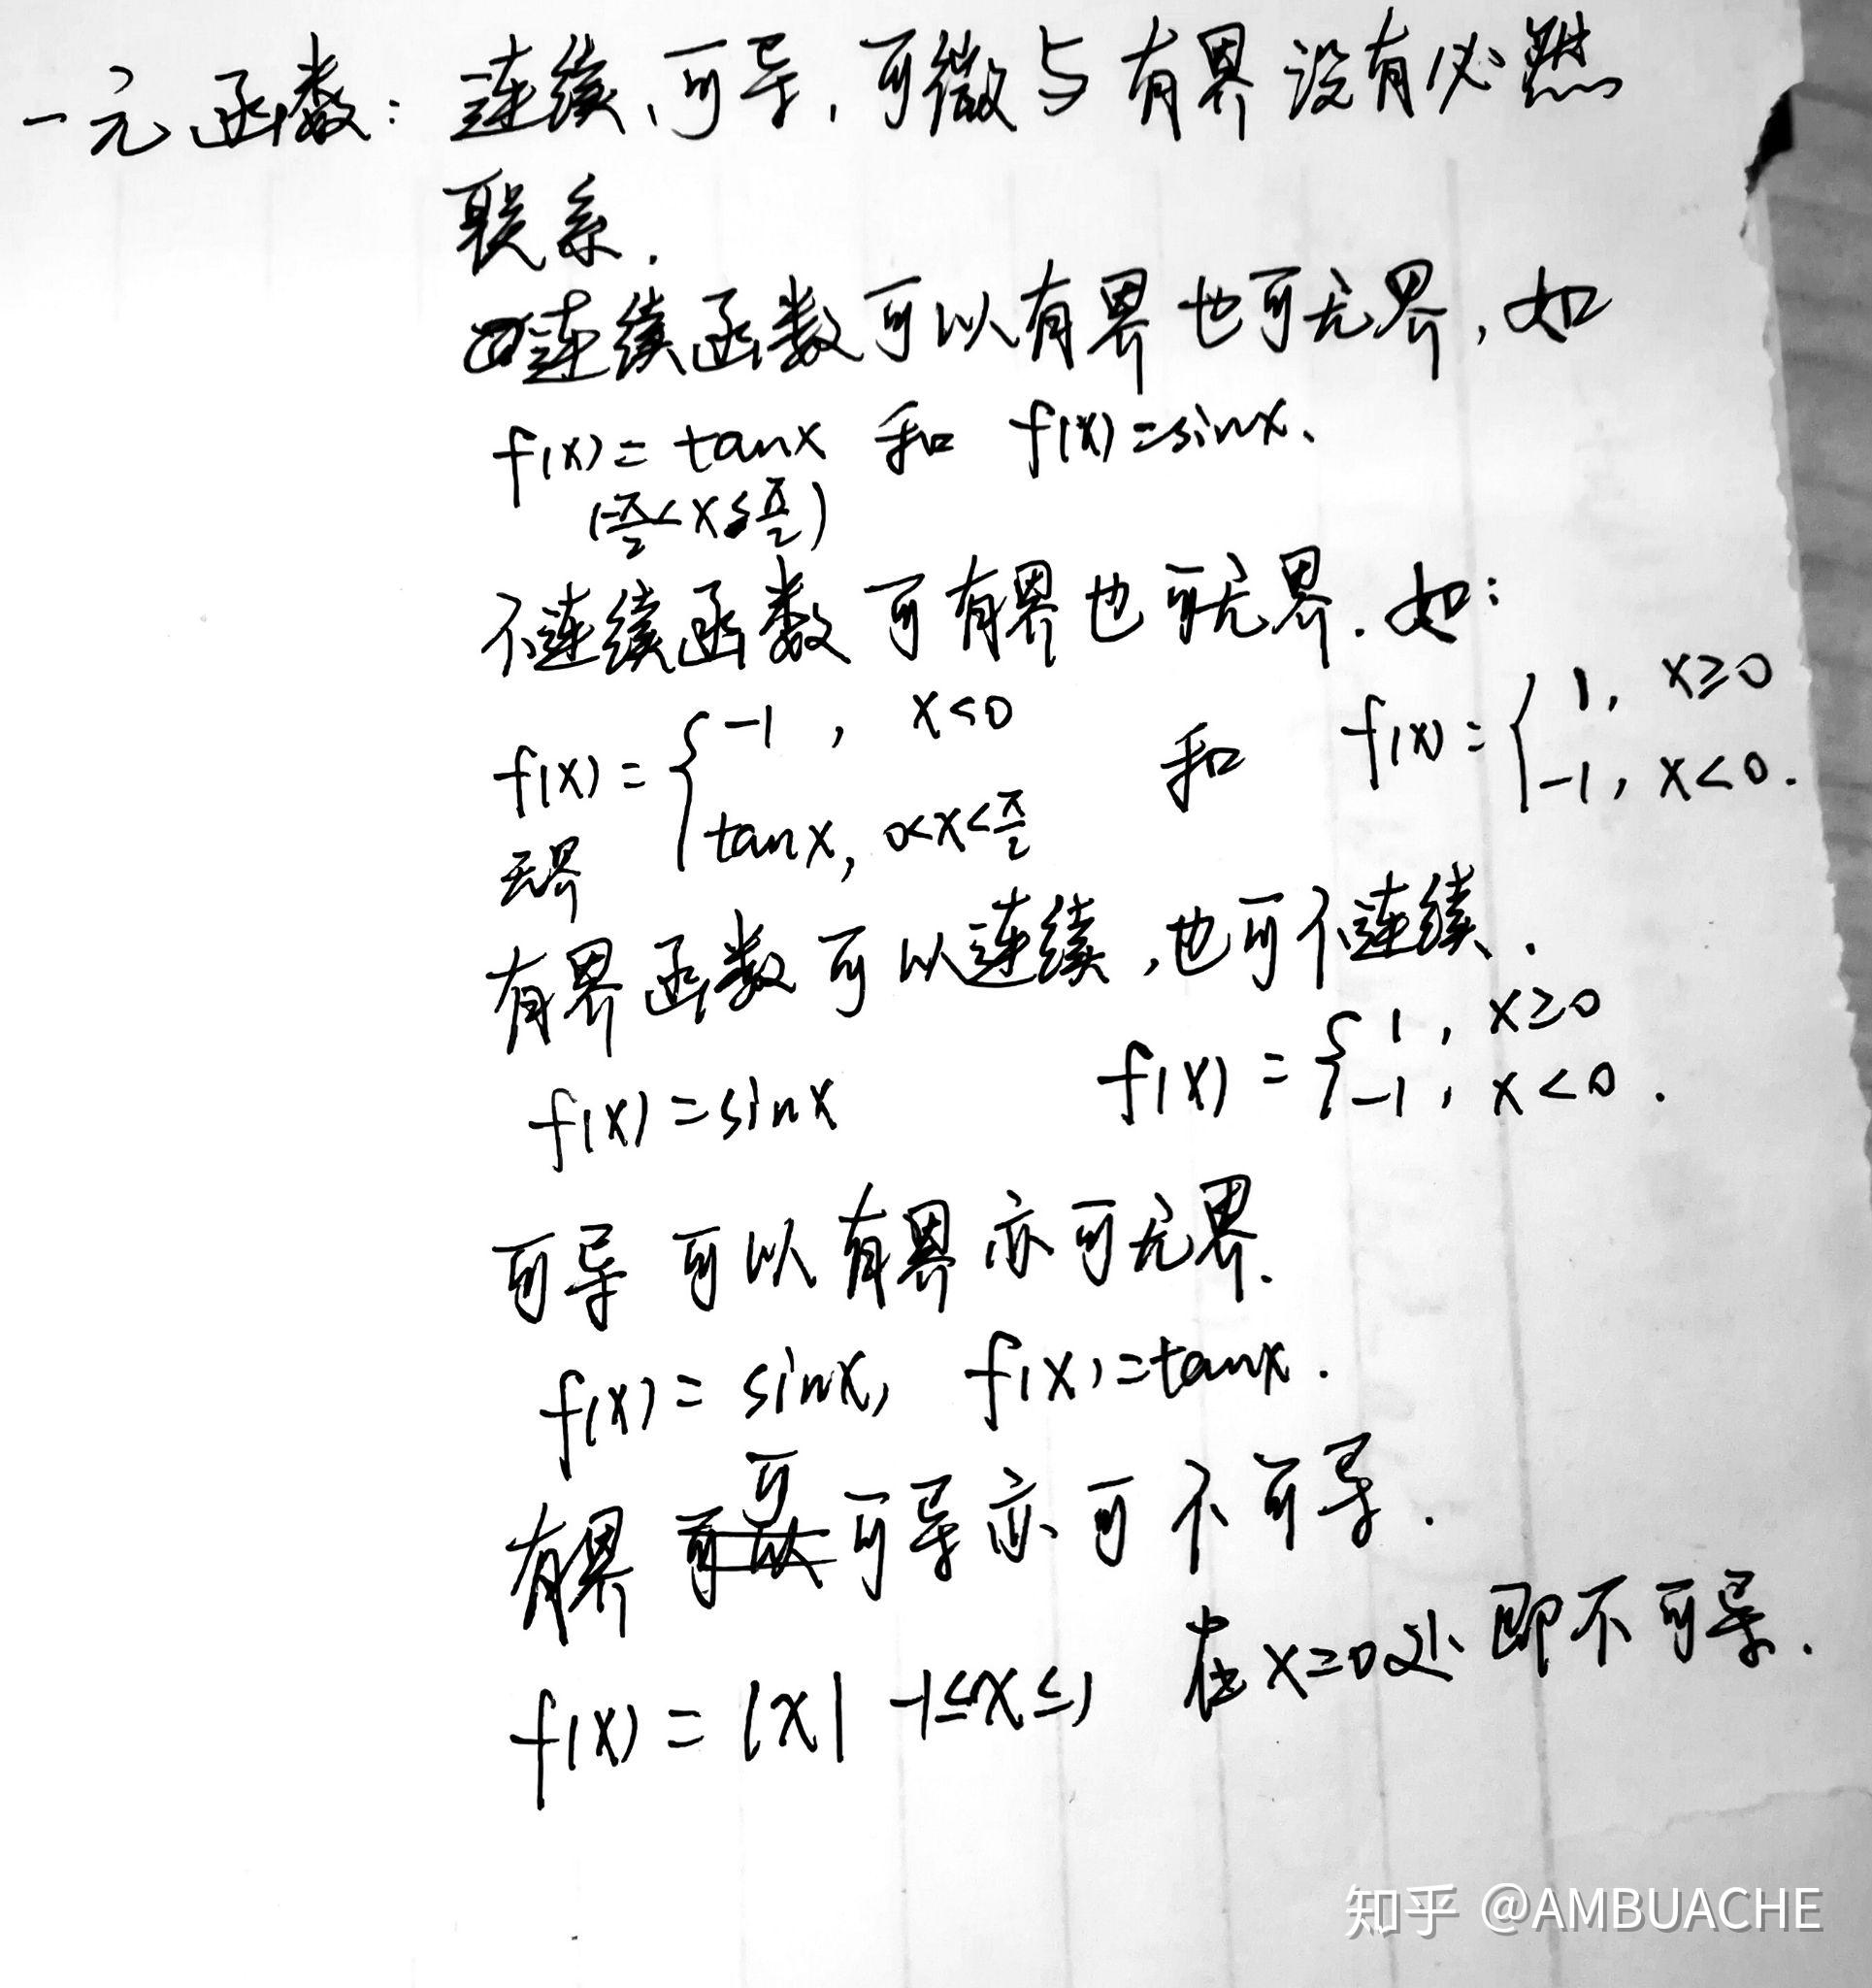 一元函数：连续、可导，可微与有界没有必然
联系.
连续函数可以有界也可无界，如
f(x)=tanx 和 f(x)=sinx、
(-π/2<x≤π/2)
不连续函数可有界也可无界. 如：
f(x)={-1, x<0 tanx, 0<x<π/2 和 f(x)={1, x≥0 -1, x<0.
无界
有界函数可以连续，也可不连续.
f(x)=sinx f(x)={1, x≥0 -1, x<0.
可导可以有界亦可无界.
f(x)=sinx, f(x)=tanx.
有界可可导亦可不可导.
f(x)=|x| -1≤x≤1 在x=0处即不可导.
知乎 @AMBUACHE